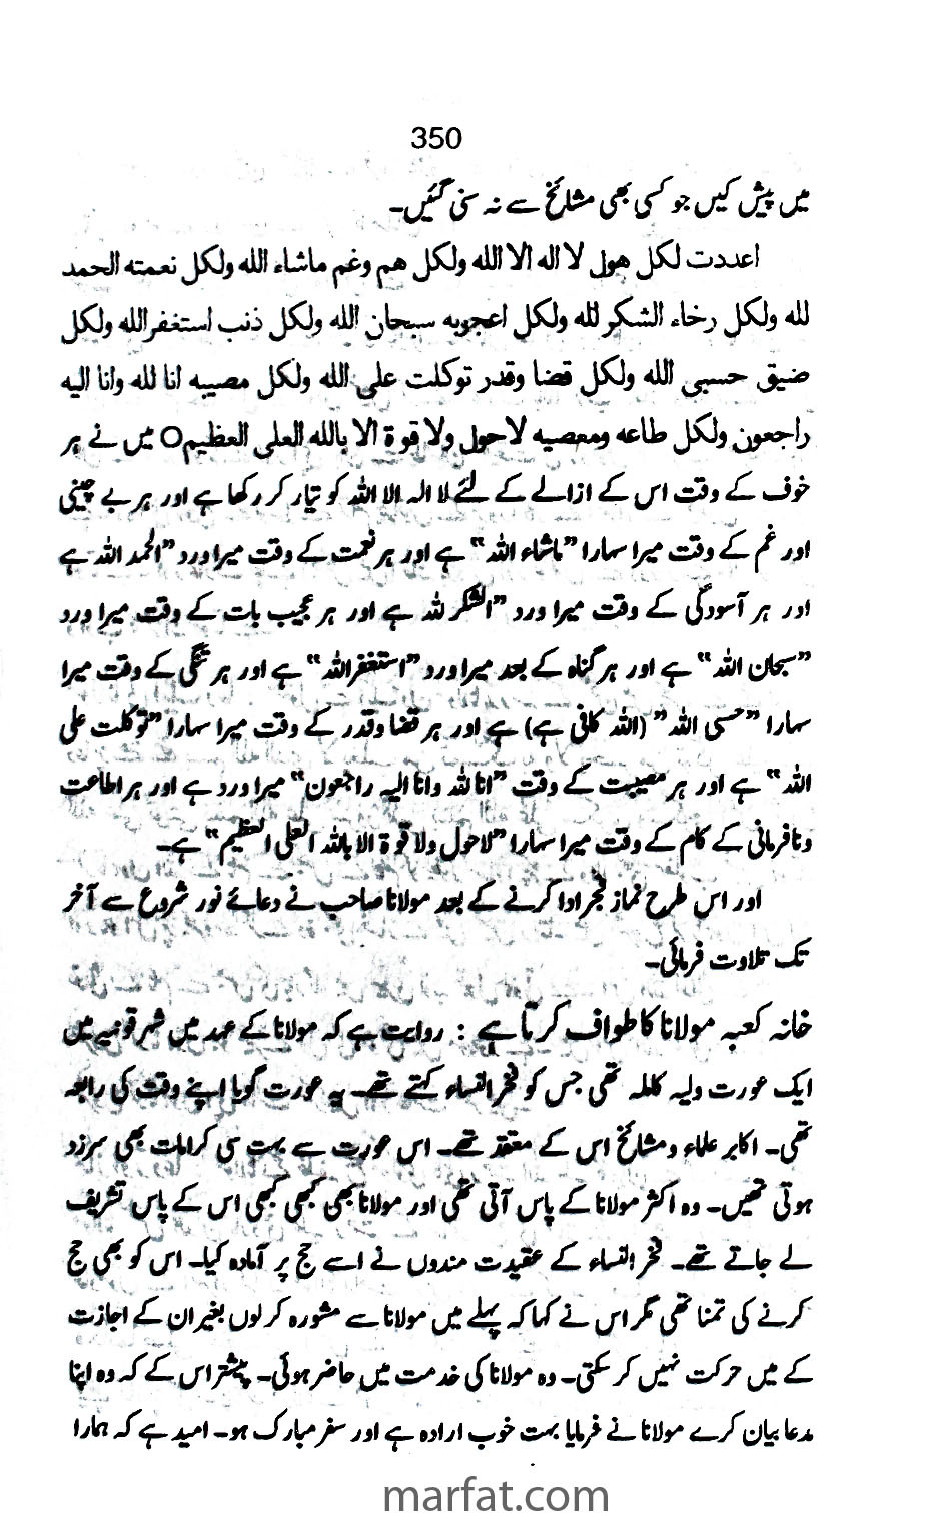 350
میں پیش کیں جو کسی بھی مشائخ سے نہ سنی گئیں۔
اعددت لکل ھول لا الہ الا اللہ ولکل ھم وغم ماشاء اللہ ولکل نعمتہ الحمد
للہ ولکل رخاء الشکر للہ ولکل اعجوبہ سبحان اللہ ولکل ذنب استغفراللہ ولکل
ضیق حسبی اللہ ولکل قضا وقدر توکلت علی اللہ ولکل مصیبہ انا للہ وانا الیہ
راجعون ولکل طاعہ ومعصیہ لاحول ولا قوۃ الا باللہ العلی العظیمO میں نے ہر
خوف کے وقت اس کے ازالے کے لئے لا الہ الا اللہ کو تیار کر رکھا ہے اور ہر بے چینی
اور غم کے وقت میرا سہارا ”ماشاء اللہ“ ہے اور ہر نعمت کے وقت میرا ورد ”الحمد اللہ ہے
اور ہر آسودگی کے وقت میرا ورد ”الشکر للہ ہے اور ہر عجیب بات کے وقت میرا ورد
”سبحان اللہ“ ہے اور ہر گناہ کے بعد میرا ورد ”استغفراللہ“ ہے اور ہر تنگی کے وقت میرا
سہارا ”حسبی اللہ“ (اللہ کافی ہے) ہے اور ہر قضا وقدر کے وقت میرا سہارا ”توکلت علی
اللہ“ ہے اور ہر مصیبت کے وقت ”انا للہ وانا الیہ راجعون“ میرا ورد ہے اور ہر اطاعت
ونافرمانی کے کام کے وقت میرا سہارا ”لاحول ولا قوۃ الا باللہ العلی العظیم“ ہے۔
اور اس طرح نماز فجر ادا کرنے کے بعد مولانا صاحب نے دعائے نور شروع سے آخر
تک تلاوت فرمائی۔
خانہ کعبہ مولانا کا طواف کرتا ہے : روایت ہے کہ مولانا کے عہد میں شہر قونیہ میں
ایک عورت ولیہ کاملہ تھی جس کو فخر النساء کہتے تھے۔ یہ عورت گویا اپنے وقت کی رابعہ
تھی۔ اکابر علماء ومشائخ اس کے معتقد تھے۔ اس عورت سے بہت سی کرامات بھی سرزد
ہوتی تھیں۔ وہ اکثر مولانا کے پاس آتی تھی اور مولانا بھی کبھی کبھی اس کے پاس تشریف
لے جاتے تھے۔ فخر النساء کے عقیدت مندوں نے اسے حج پر آمادہ کیا۔ اس کو بھی حج
کرنے کی تمنا تھی مگر اس نے کہا کہ پہلے میں مولانا سے مشورہ کر لوں بغیر ان کے اجازت
کے میں حرکت نہیں کر سکتی۔ وہ مولانا کی خدمت میں حاضر ہوئی۔ پیشتر اس کے کہ وہ اپنا
مدعا بیان کرے مولانا نے فرمایا بہت خوب ارادہ ہے اور سفر مبارک ہو۔ امید ہے کہ ہمارا
marfat.com